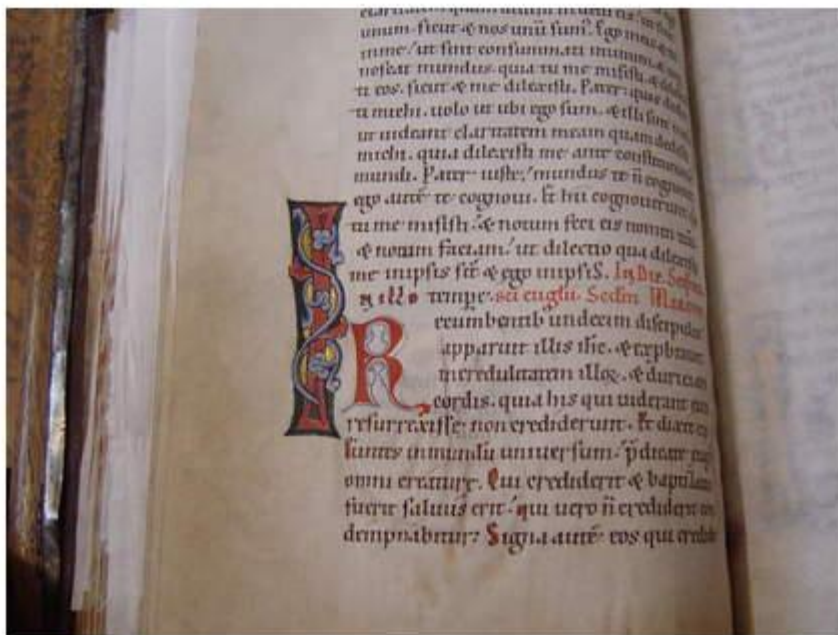 unum. sicut & nos unū sum⁹. Ego in eis &
in me / ut sint consummati in unum. &
noscat mundus. quia tu me misisti. &
eos. sicut & me dilexisti. Pater. quos
michi. uolo ut ubi ego sum. & illi sint
ut uideant claritatem meam quam
michi. quia dilexisti me ante
mundi. Pater iuste / mundus te ñ
ego autē te cognoui. Et hii cognouerunt
tu me misisti. & notum feci eis nomen
& notum faciam / ut dilectio qua
me in ipsis sit & ego in ipsis. In Die
n illo tempr. sci euglii. Sedm
Recumbentib⁹ undecim
apparuit illis ihc. &
incredulitatem illoꝝ. &
cordis. quia his qui uiderant
resurrexisse non crediderunt. Et dixit
Euntes in mundū uniuersum / p̄dicate
omni creature. Qui crediderit &
fuerit saluus erit / qui uero ñ
dempnabitur. Signa autē eos qui